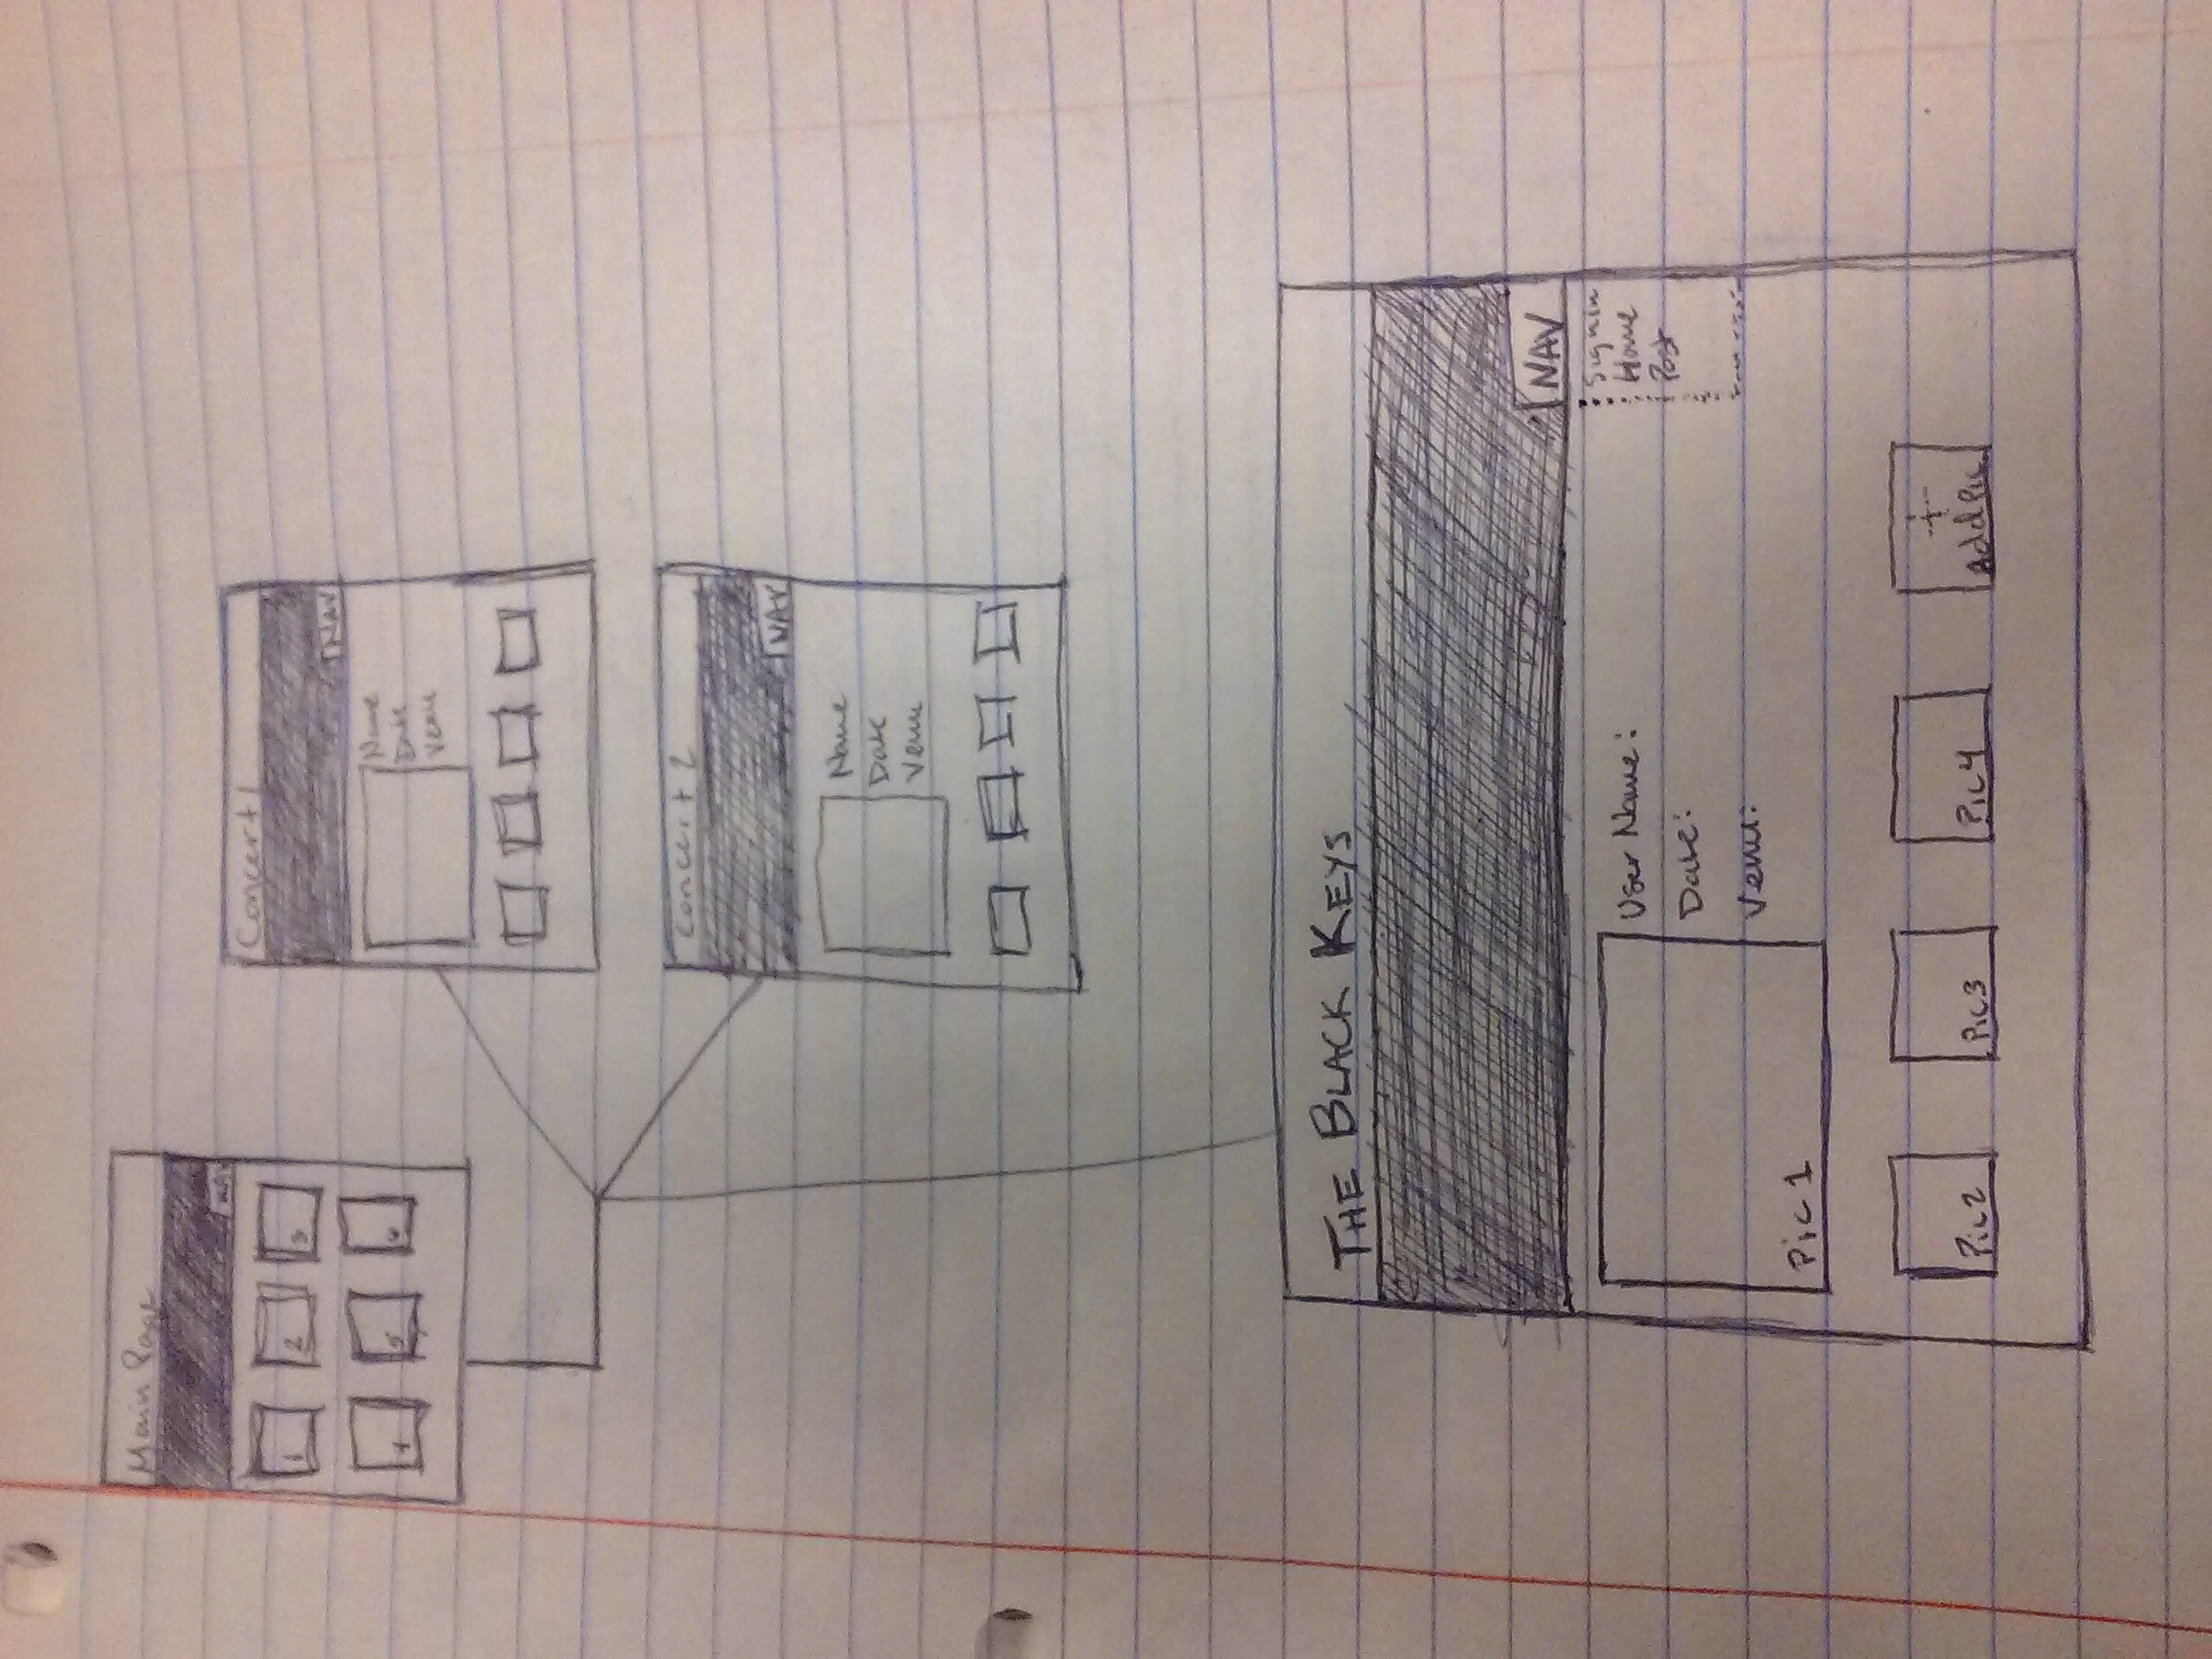 Main Page
NAV
1 2 3
4 5 6
Concert 1
NAV
Name
Date
Venu
Concert 2
NAV
Name
Date
Venu
THE BLACK KEYS
NAV
Sign In
Home
Post
User Name:
Date:
Venu:
Pic 1
Pic 2 Pic 3 Pic 4 + Add Pic